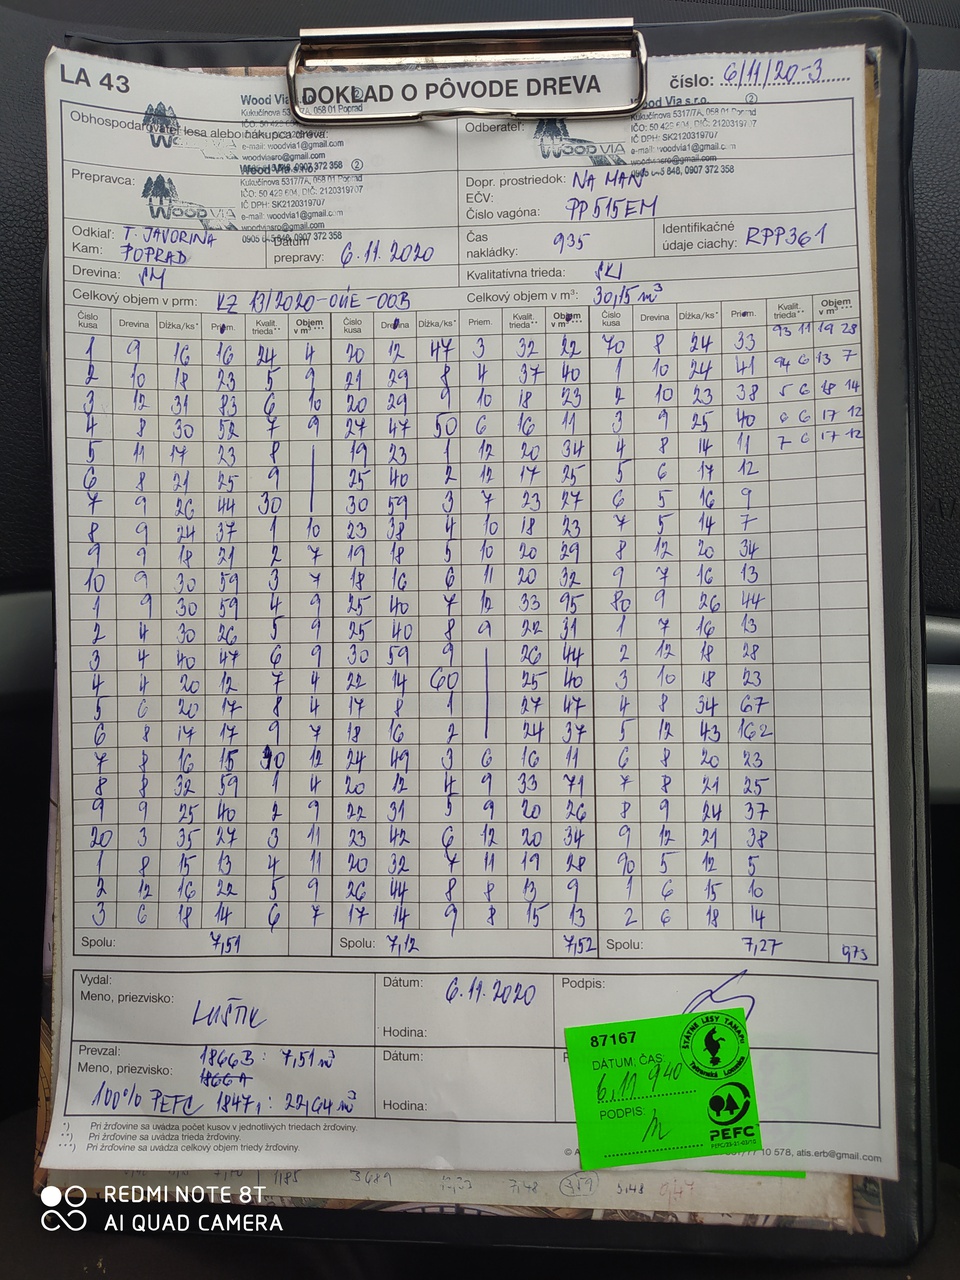 LA 43
DOKLAD O PÔVODE DREVA
číslo: 6/11/20-3
Obhospodarovateľ lesa alebo nákupca dreva:
Wood Via s.r.o.
Kukučínova 5317/7A, 058 01 Poprad
e-mail: woodvia1@gmail.com
woodviasro@gmail.com
0907 372 358
WOOD VIA
Odberateľ:
Wood Via s.r.o.
Kukučínova 5317/7A, 058 01 Poprad
IČO: 50 429 604, DIČ: 2120319707
IČ DPH: SK2120319707
e-mail: woodvia1@gmail.com
woodviasro@gmail.com
0907 372 358
WOOD VIA
Prepravca:
Wood Via s.r.o.
Kukučínova 5317/7A, 058 01 Poprad
IČO: 50 429 604, DIČ: 2120319707
IČ DPH: SK2120319707
e-mail: woodvia1@gmail.com
woodviasro@gmail.com
0907 372 358
WOOD VIA
Dopr. prostriedok: NA MAN
EČV:
Číslo vagóna: PP515EM
Odkiaľ: T. JAVORINA
Kam: POPRAD
Dátum prepravy: 6.11.2020
Čas nakládky: 935
Identifikačné údaje ciachy: RPP361
Drevina: SM
Kvalitatívna trieda:
Celkový objem v prm: KZ 13/2020-OÚE-OOB
Celkový objem v m³: 30,15 m³
Číslo kusa Drevina Dĺžka/ks* Priem. Kvalit. trieda** Objem v m³*** Číslo kusa Drevina Dĺžka/ks* Priem. Kvalit. trieda** Objem v m³*** Číslo kusa Drevina Dĺžka/ks* Priem. Kvalit. trieda** Objem v m³***
93 11 19 28
1 9 16 16 24 4 20 12 47 3 32 22 70 8 24 33
94 6 13 7
2 10 18 23 5 9 21 29 8 4 37 40 1 10 24 41
5 6 18 14
3 12 31 83 6 10 20 29 9 10 18 23 2 10 23 38
6 6 17 12
4 8 30 52 7 9 27 47 50 6 16 11 3 9 25 40
7 6 17 12
5 11 17 23 8 19 23 1 12 20 34 4 8 14 11
6 8 21 25 9 25 40 2 12 17 25 5 6 17 12
7 9 26 44 30 30 59 3 7 23 27 6 5 16 9
8 9 24 37 1 10 23 38 4 10 18 23 7 5 14 7
9 9 18 21 2 7 19 18 5 10 20 29 8 12 20 34
10 9 30 59 3 7 18 16 6 11 20 32 9 7 16 13
1 9 30 59 4 9 25 40 7 12 33 95 80 9 26 44
2 4 30 26 5 9 25 40 8 9 22 31 1 7 16 13
3 4 40 47 6 9 30 59 9 26 44 2 12 18 28
4 4 20 12 7 4 22 14 60 25 40 3 10 18 23
5 6 20 17 8 4 17 8 1 27 47 4 8 34 67
6 8 17 17 9 7 18 16 2 24 37 5 12 43 162
7 8 16 15 40 12 24 49 3 6 16 11 6 8 20 23
8 8 32 59 1 4 20 12 4 9 33 71 7 8 21 25
9 9 25 40 2 9 22 31 5 9 20 26 8 9 24 37
20 3 35 27 3 11 23 42 6 12 20 34 9 12 21 38
1 8 15 13 4 11 20 32 7 11 19 28 90 5 12 5
2 12 16 22 5 9 26 44 8 8 13 9 1 6 15 10
3 6 18 14 6 7 17 14 9 8 15 13 2 6 18 14
Spolu: 7,51 Spolu: 7,12 7,52 Spolu: 7,27 973
Vydal:
Meno, priezvisko:
Dátum: 6.11.2020
Hodina:
Podpis:
Prevzal:
Meno, priezvisko:
1866B : 7,51 m³
1866 A
100% PEFC 1847, : 22,64 m³
Dátum:
Hodina:
87167
DÁTUM, ČAS:
6.11 940
PODPIS:
ŠTÁTNE LESY TANAPU
Tatranská Lomnica
PEFC
*) Pri žrďovine sa uvádza počet kusov v jednotlivých triedach žrďoviny.
**) Pri žrďovine sa uvádza trieda žrďoviny.
***) Pri žrďovine sa uvádza celkový objem triedy žrďoviny.
10 578, atis.erb@gmail.com
1185 3689 7,48 5,48 9,47
REDMI NOTE 8T
AI QUAD CAMERA